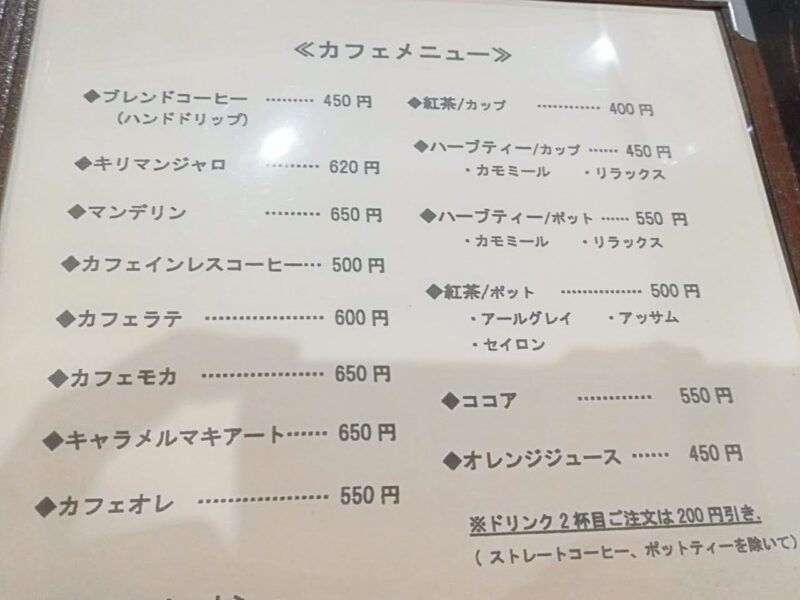 ≪カフェメニュー≫
◆ブレンドコーヒー ……… 450円
（ハンドドリップ）
◆キリマンジャロ ……… 620円
◆マンデリン ……… 650円
◆カフェインレスコーヒー… 500円
◆カフェラテ ……………… 600円
◆カフェモカ ……………… 650円
◆キャラメルマキアート…… 650円
◆カフェオレ ……………… 550円
◆紅茶/カップ ………… 400円
◆ハーブティー/カップ …… 450円
・カモミール ・リラックス
◆ハーブティー/ポット …… 550円
・カモミール ・リラックス
◆紅茶/ポット …………… 500円
・アールグレイ ・アッサム
・セイロン
◆ココア ………… 550円
◆オレンジジュース …… 450円
※ドリンク2杯目ご注文は200円引き.
( ストレートコーヒー、ポットティーを除いて)